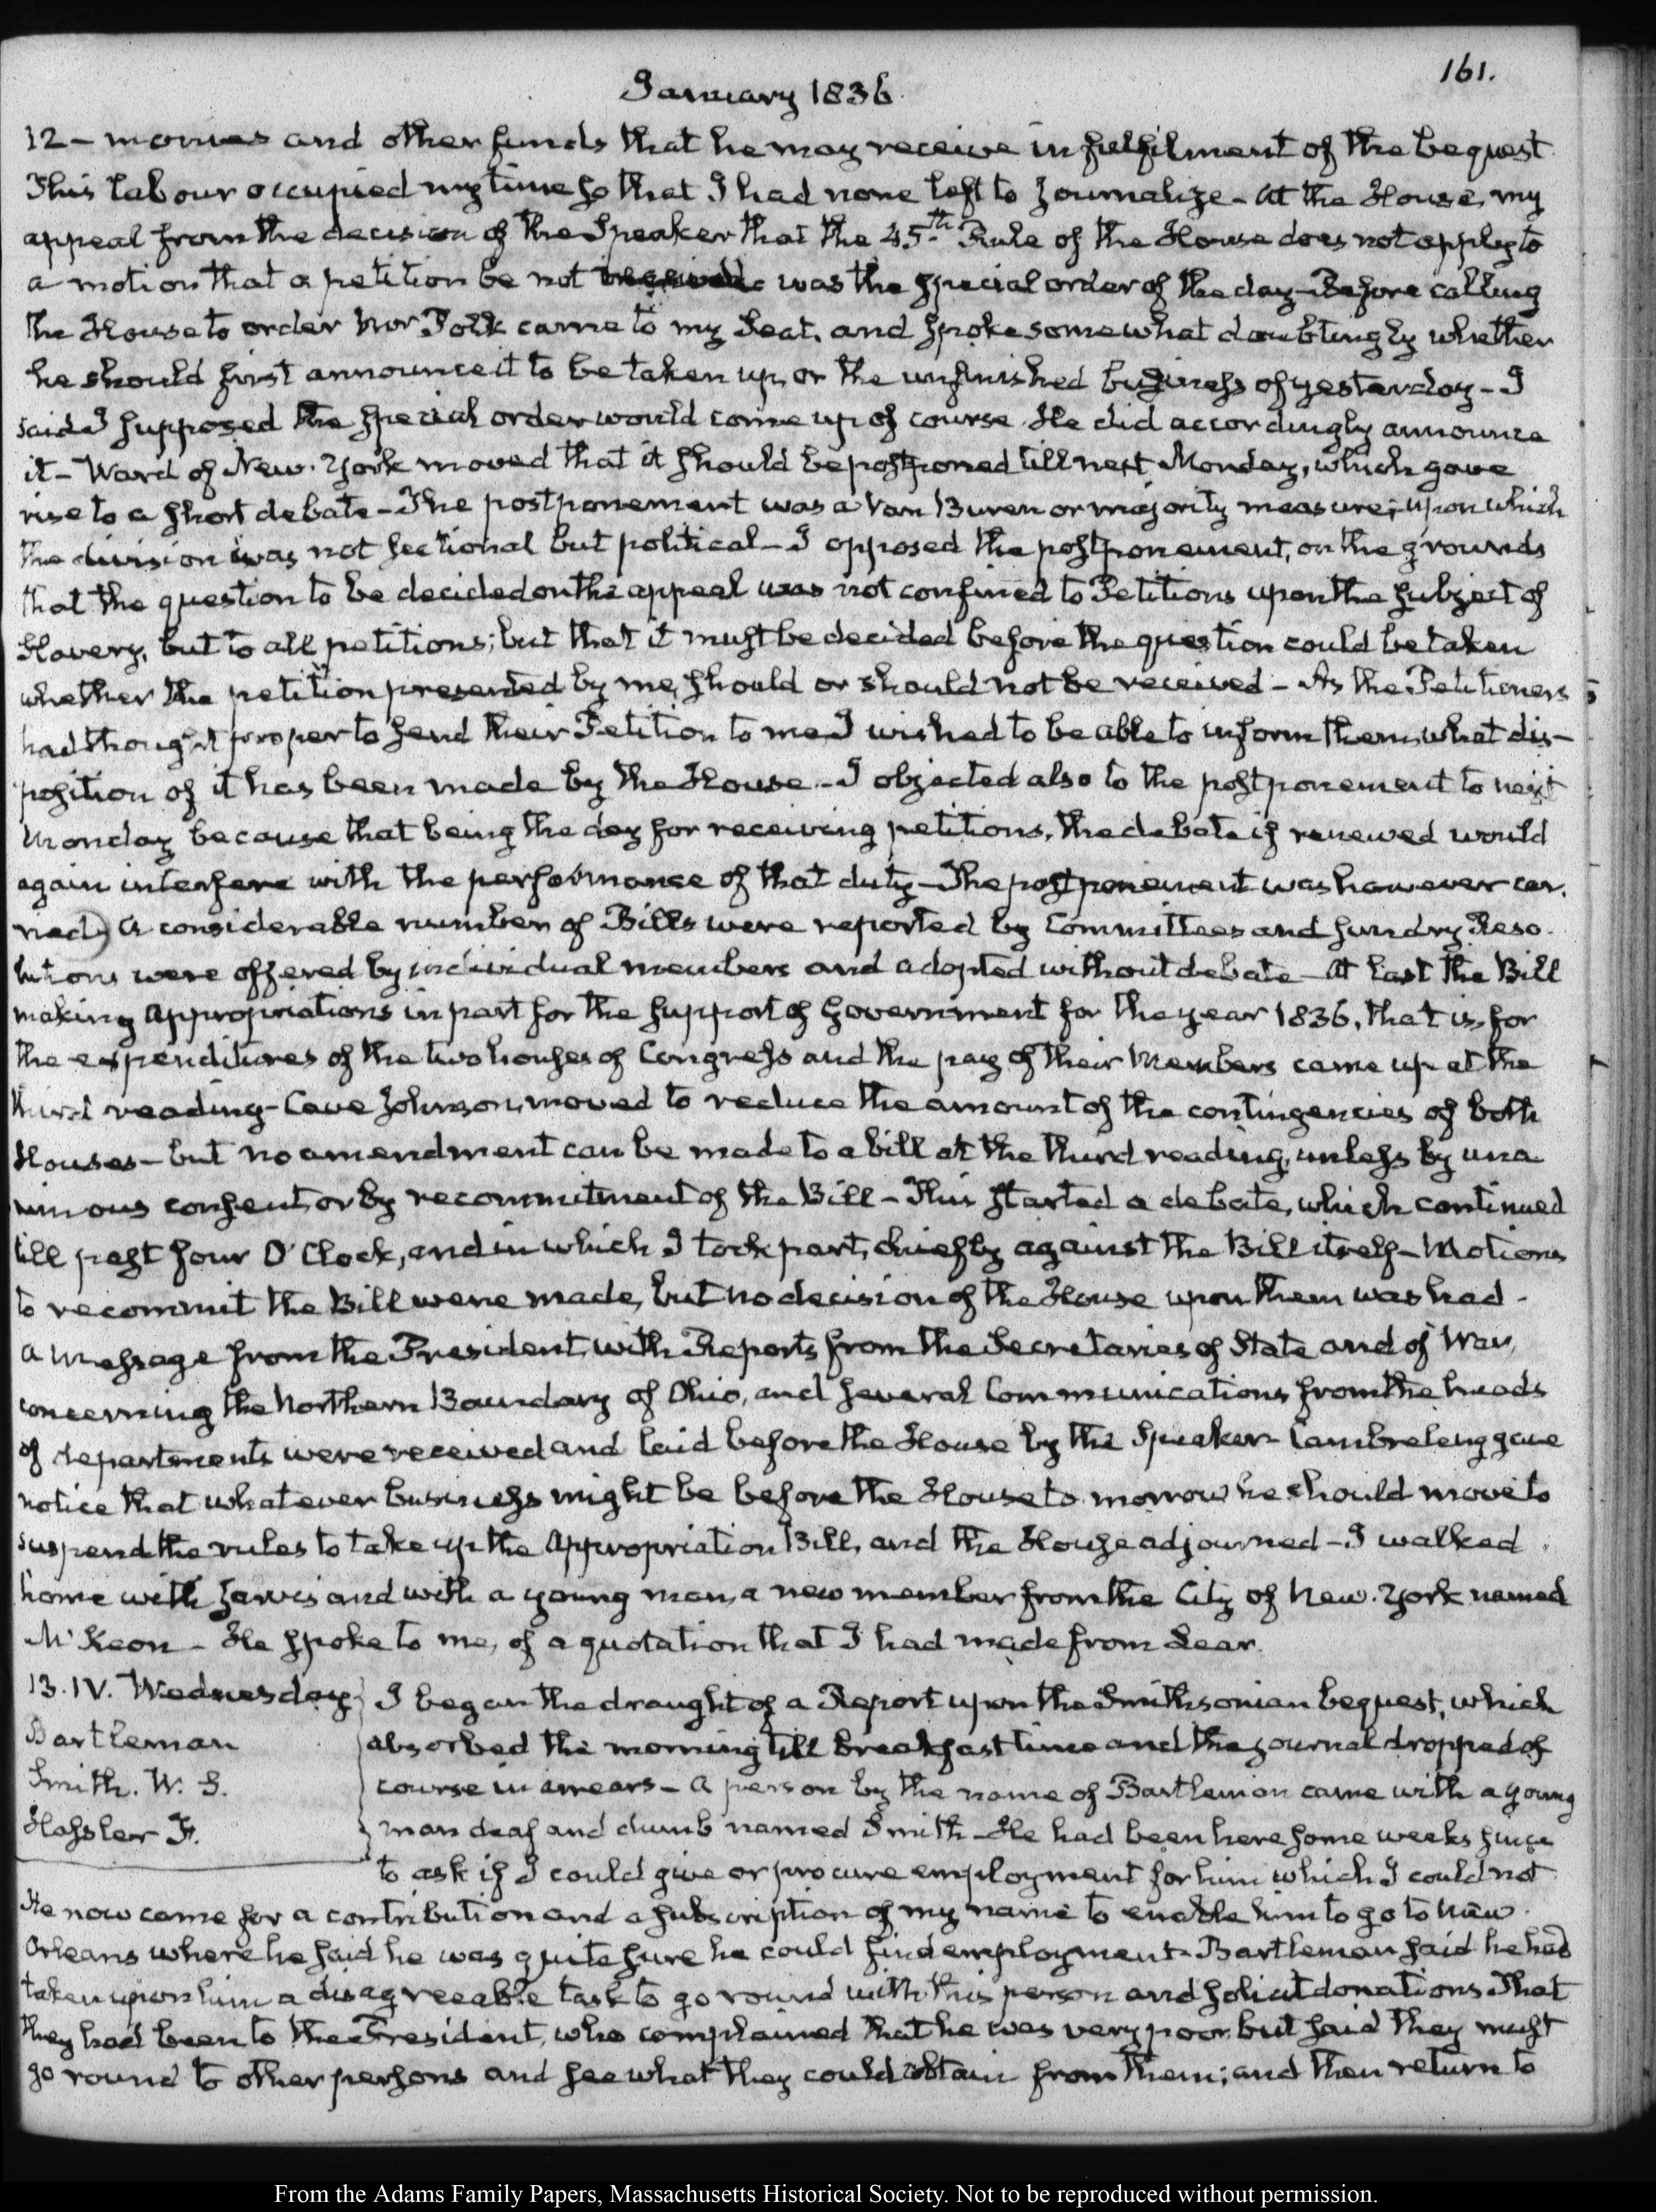 161.
January 1836
12 – monies and other funds that he may receive in fulfilment of the bequest
This labour occupied my time so that I had none left to journalize – At the House, my
appeal from the decision of the Speaker that the 45th Rule of the House does not apply to
a motion that a petition be not received was the special order of the day – Before calling
the House to order Mr Polk came to my Seat, and spoke somewhat doubtingly whether
he should first announce it to be taken up, or the unfinished business of yesterday – I
said I supposed the special order would come up of course. He did accordingly announce
it – Ward of New-York moved that it should be postponed till next Monday, which gave
rise to a short debate – The postponement was a Van Buren or majority measure; upon which
the division was not sectional but political – I opposed the postponement, on the grounds
that the question to be decided on the appeal was not confined to Petitions upon the subject of
Slavery, but to all petitions; but that it must be decided before the question could be taken
whether the petition presented by me, should or should not be received – As the Petitioners
had thought proper to send their Petition to me I wished to be able to inform them, what dis-
position of it has been made by the House – I objected also to the postponement to next
Monday because that being the day for receiving petitions, the debate if renewed would
again interfere with the performance of that duty – The postponement was however car-
ried) A considerable number of Bills were reported by Committees and sundry Reso-
lutions were offered by individual members and adopted without debate – At last the Bill
making Appropriations in part for the support of Government for the year 1836, that is, for
the expenditures of the two houses of Congress and the pay of their Members came up at the
third reading – Cave Johnson, moved to reduce the amount of the contingencies of both
Houses – but no amendment can be made to a bill at the third reading, unless by una-
nimous consent, or by recommitment of the Bill – This started a debate, which continued
till past four O'Clock, and in which I took part, chiefly against the Bill itself – Motions
to recommit the Bill were made, but no decision of the House upon them was had –
A Message from the President, with Reports from the Secretaries of State and of War,
concerning the Northern Boundary of Ohio, and several Communications from the heads
of departments were received and laid before the House by the Speaker – Cambreleng gave
notice that whatever business might be before the House to-morrow he should move to
suspend the rules to take up the Appropriation Bill, and the House adjourned – I walked
home with Jarvis and with a young man, a new member from the City of New-York named
McKeon – He spoke to me, of a quotation that I had made from Lear.
13. IV. Wednesday
Bartleman
Smith. W. S.
Hassler F.
I began the draught of a Report upon the Smithsonian bequest, which
absorbed the morning till breakfast time and the journal dropped of
course in arrears – A person by the name of Bartleman came with a young
man deaf and dumb named Smith – He had been here some weeks since
to ask if I could give or procure employment for him which I could not
He now came for a contribution and a subscription of my name to enable him to go to New-
Orleans where he said he was quite sure he could find employment – Bartleman said he had
taken upon him a disagreeable task to go round with this person and solicit donations. That
they had been to the President, who complained that he was very poor but said they must
go round to other persons and see what they could obtain from them; and then return to
From the Adams Family Papers, Massachusetts Historical Society. Not to be reproduced without permission.